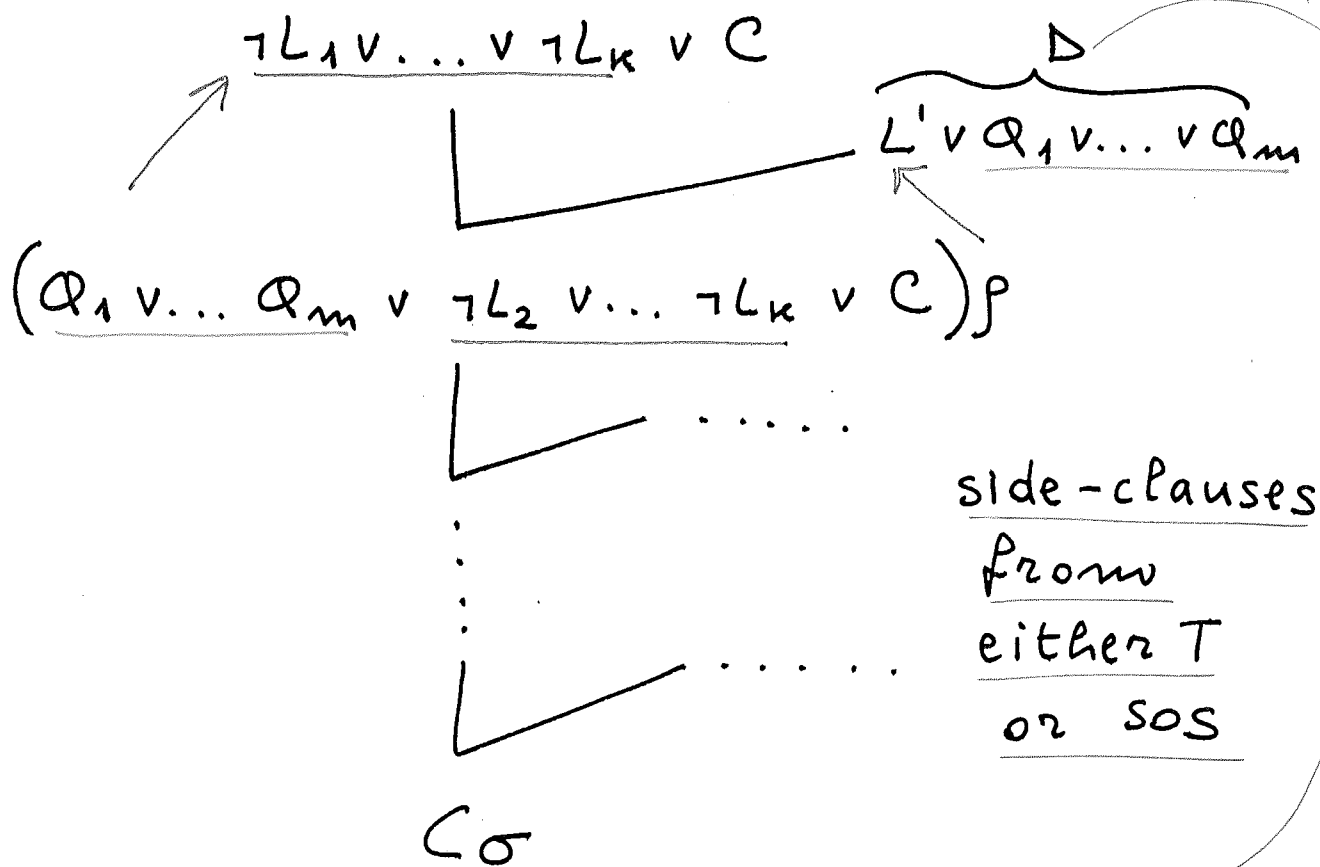 ¬L₁ ∨ ... ∨ ¬Lₖ ∨ C
D
L' ∨ Q₁ ∨ ... ∨ Qₘ
(Q₁ ∨ ... Qₘ ∨ ¬L₂ ∨ ... ¬Lₖ ∨ C)ρ
. . . . .
side-clauses
from
either T
. . . . . .
or SOS
Cσ